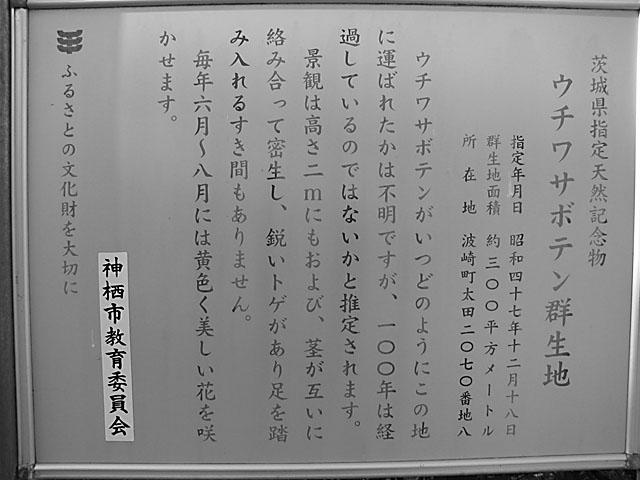 茨城県指定天然記念物
ウチワサボテン群生地
指定年月日 昭和四十七年十二月十八日
群生地面積 約三〇〇平方メートル
所在地 波崎町太田二〇七〇番地八
ウチワサボテンがいつどのようにこの地
に運ばれたかは不明ですが、一〇〇年は経
過しているのではないかと推定されます。
景観は高さ二mにもおよび、茎が互いに
絡み合って密生し、鋭いトゲがあり足を踏
み入れるすき間もありません。
毎年六月〜八月には黄色く美しい花を咲
かせます。
ふるさとの文化財を大切に
神栖市教育委員会